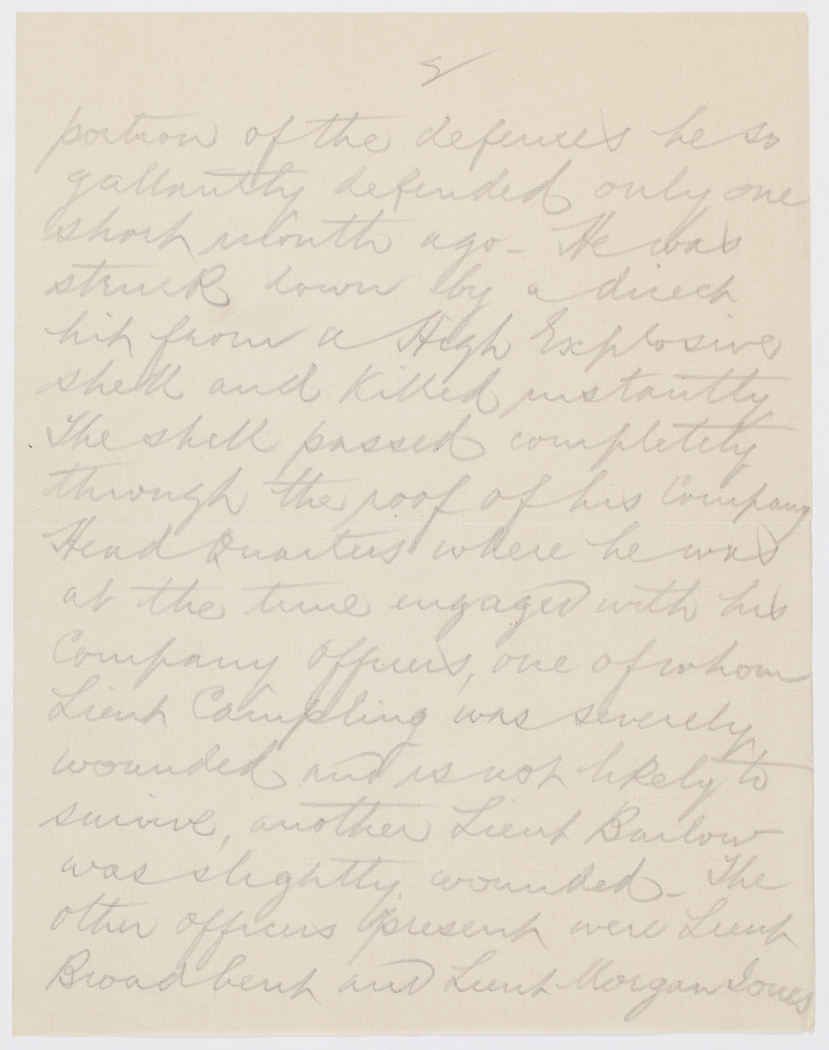 2
portion of the defenses he so
gallantly defended only one
short month ago - He was
struck down by a direct
hit from a High Explosive
shell and Killed instantly
The shell passed completely
through the roof of his Company
Head Quarters where he was
at the time engaged with his
Company Officers, one of whom
Lieut Campling was severely
wounded and is not likely to
survive, another Lieut Barlow
was slightly wounded - The
other officers present were Lieut
Broadbent and Lieut Morgan Jones